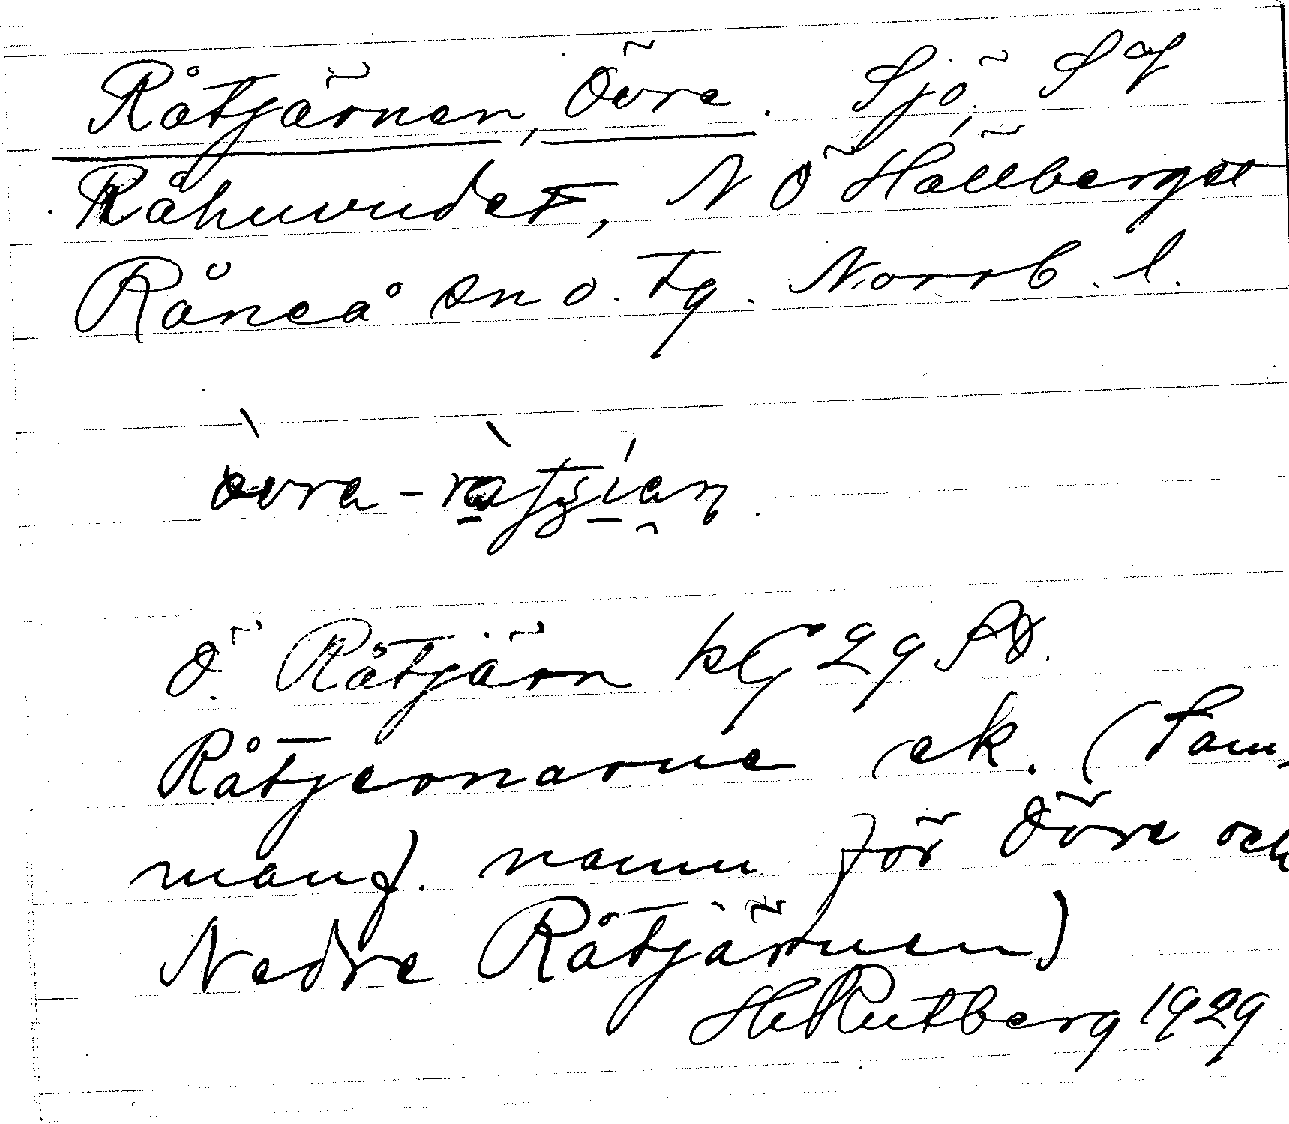 Råtjärnen, Övre. Sjö. S af
Råhuvudet, N Ö Hällberget
Råneå sn o. tg. Norrb. l.
òvra-ràtʒían.
Ö. Råtjärn kG 29 SO.
Råtjernarne ek. (Sam-
manf. namn för Övre och
Nedre Råtjärnen)
H Rutberg 1929